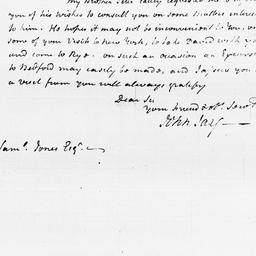 My Brother
you of his wishes to consult you on some Matters
to him. He hopes it may not be inconvenient to You, on
some of your Visits to New York, to take
and come to Rye. on such an occasion an Excursion
to Bedford may easily be made, and I assure you
a visit from you will always gratify
Dear Sir
Your friend & obt. Servt
John Jay
Saml. Jones Esqr.